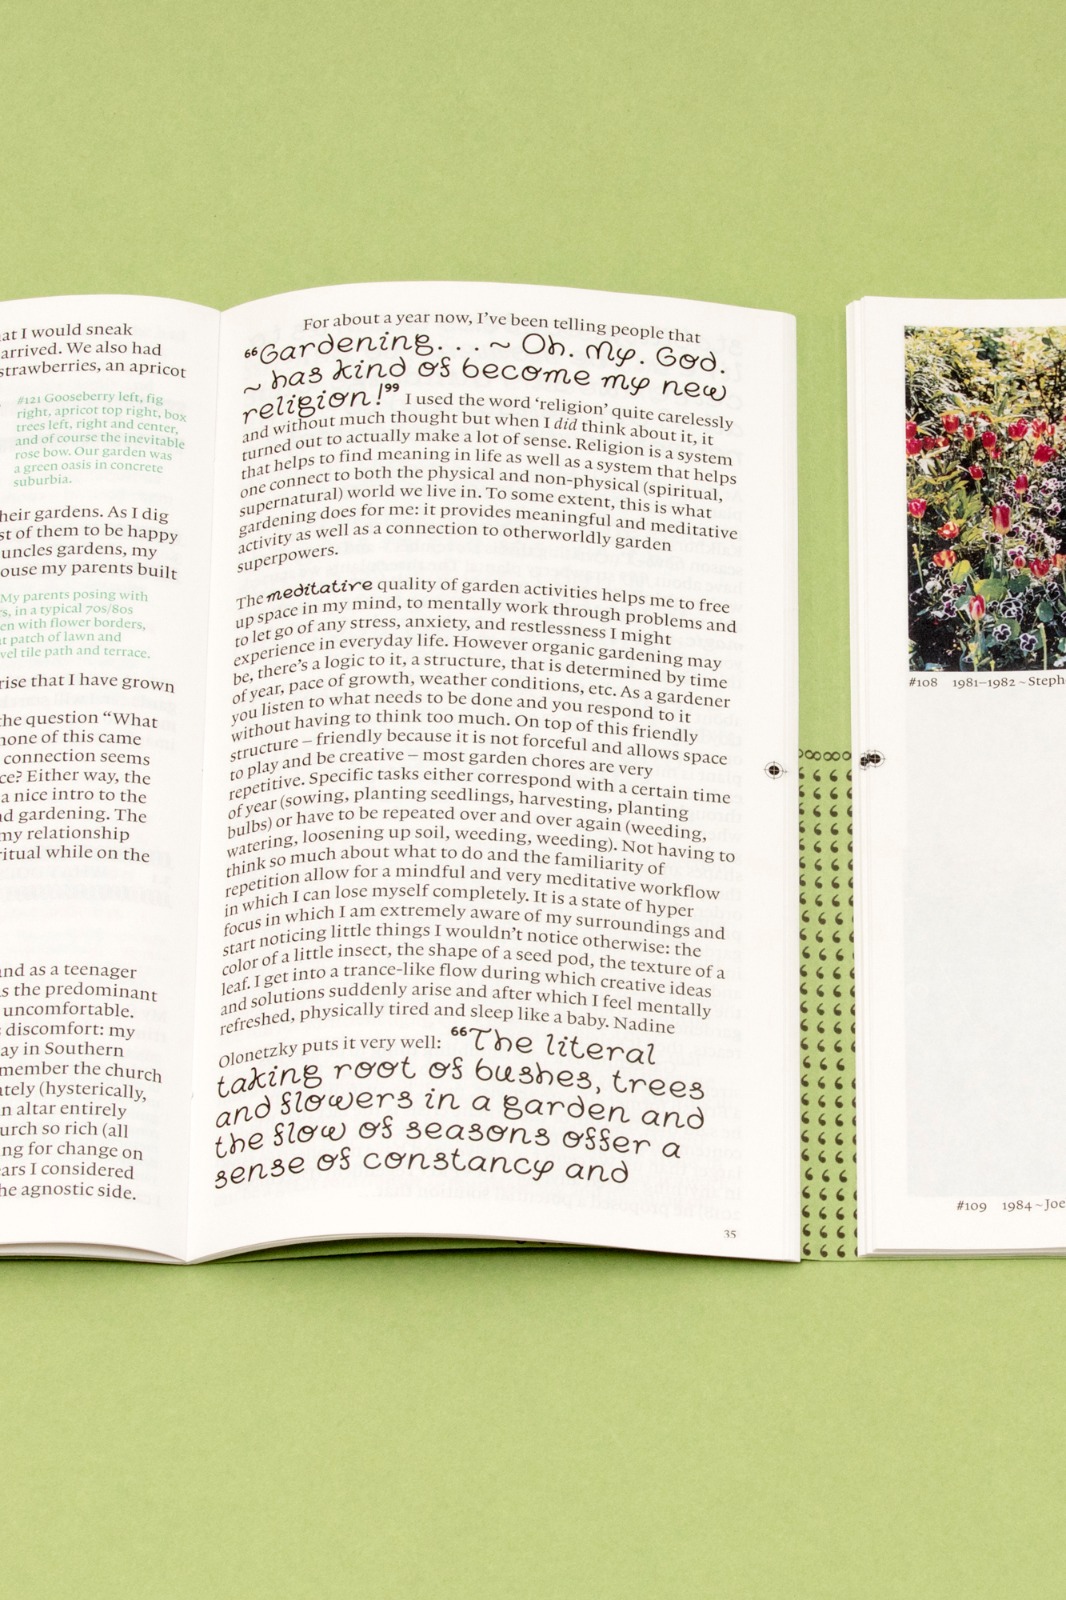 at I would sneak
arrived. We also had
strawberries, an apricot
#121 Gooseberry left, fig
right, apricot top right, box
trees left, right and center,
and of course the inevitable
rose bow. Our garden was
a green oasis in concrete
suburbia.
heir gardens. As I dig
st of them to be happy
uncles gardens, my
ouse my parents built
My parents posing with
rs, in a typical 70s/80s
en with flower borders,
at patch of lawn and
vel tile path and terrace.
rise that I have grown
the question “What
none of this came
connection seems
ce? Either way, the
a nice intro to the
nd gardening. The
my relationship
ritual while on the
and as a teenager
as the predominant
uncomfortable.
discomfort: my
ay in Southern
member the church
ately (hysterically,
n altar entirely
urch so rich (all
ng for change on
ears I considered
he agnostic side.
For about a year now, I’ve been telling people that
“Gardening. . . ~ Oh. My. God.
~ has kind of become my new
religion!” I used the word ‘religion’ quite carelessly
and without much thought but when I did think about it, it
turned out to actually make a lot of sense. Religion is a system
that helps to find meaning in life as well as a system that helps
one connect to both the physical and non-physical (spiritual,
supernatural) world we live in. To some extent, this is what
gardening does for me: it provides meaningful and meditative
activity as well as a connection to otherworldly garden
superpowers.
The meditative quality of garden activities helps me to free
up space in my mind, to mentally work through problems and
to let go of any stress, anxiety, and restlessness I might
experience in everyday life. However organic gardening may
be, there’s a logic to it, a structure, that is determined by time
of year, pace of growth, weather conditions, etc. As a gardener
you listen to what needs to be done and you respond to it
without having to think too much. On top of this friendly
structure – friendly because it is not forceful and allows space
to play and be creative – most garden chores are very
repetitive. Specific tasks either correspond with a certain time
of year (sowing, planting seedlings, harvesting, planting
bulbs) or have to be repeated over and over again (weeding,
watering, loosening up soil, weeding, weeding). Not having to
think so much about what to do and the familiarity of
repetition allow for a mindful and very meditative workflow
in which I can lose myself completely. It is a state of hyper
focus in which I am extremely aware of my surroundings and
start noticing little things I wouldn’t notice otherwise: the
color of a little insect, the shape of a seed pod, the texture of a
leaf. I get into a trance-like flow during which creative ideas
and solutions suddenly arise and after which I feel mentally
refreshed, physically tired and sleep like a baby. Nadine
Olonetzky puts it very well: “The literal
taking root of bushes, trees
and flowers in a garden and
the flow of seasons offer a
sense of constancy and
35
#108 1981–1982 ~ Steph
#109 1984 ~ Joe